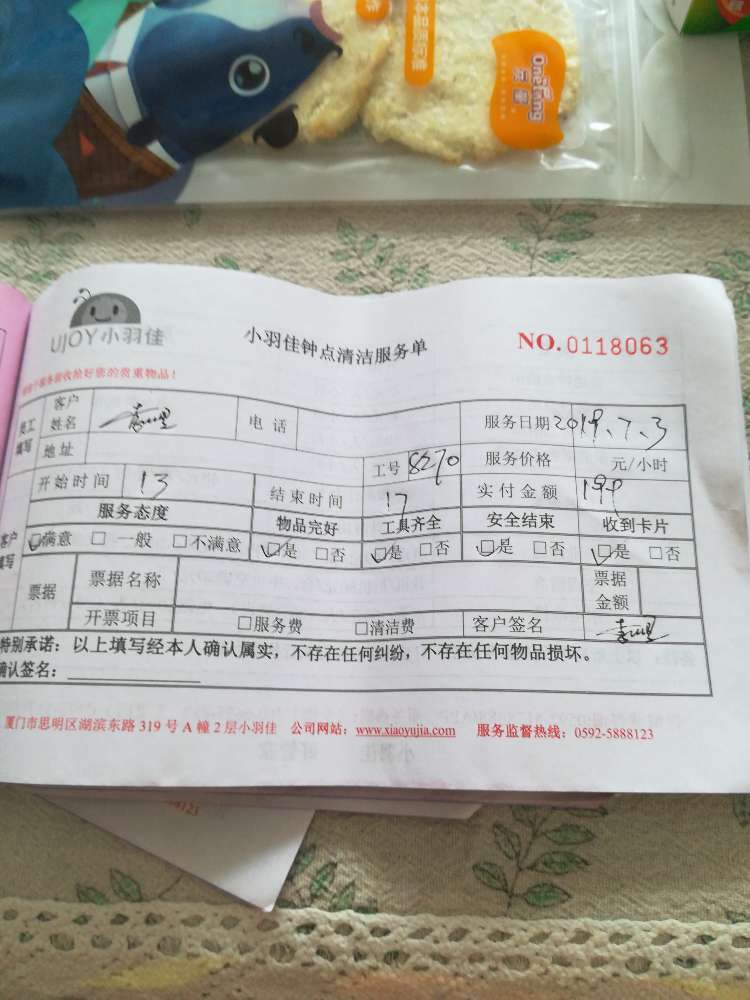 OneFang
UJOY小羽佳
小羽佳钟点清洁服务单
NO.0118063
收拾好您的贵重物品!
员工填写
客户姓名
电话
服务日期 2019.7.3
地址
工号 8270
服务价格 元/小时
开始时间 13
结束时间 17
实付金额 199
服务态度 物品完好 工具齐全 安全结束 收到卡片
客户填写
☑满意 □一般 □不满意 ☑是 □否 ☑是 □否 ☑是 □否 ☑是 □否
票据 票据名称 票据金额
开票项目 □服务费 □清洁费 客户签名
特别承诺：以上填写经本人确认属实，不存在任何纠纷，不存在任何物品损坏。
确认签名：
厦门市思明区湖滨东路 319 号 A 幢 2 层小羽佳 公司网站：www.xiaoyujia.com 服务监督热线：0592-5888123